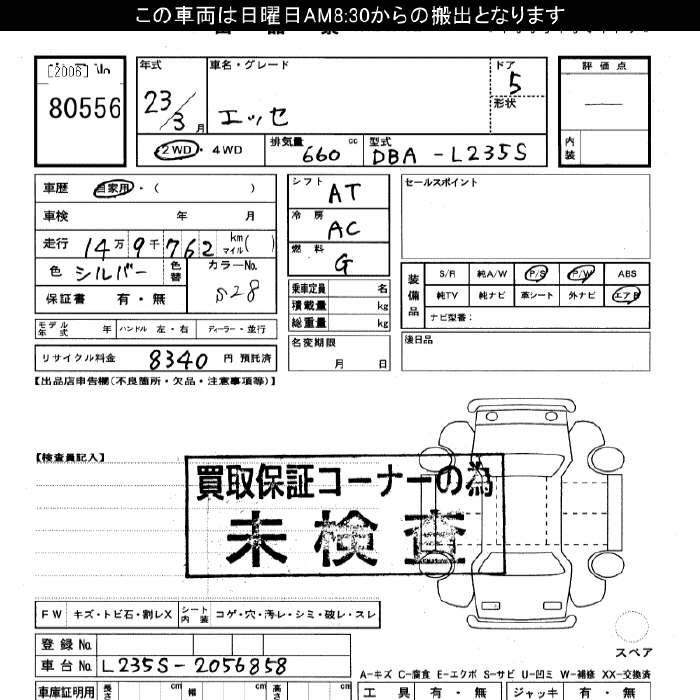 この車両は日曜日AM8:30からの搬出となります
[2006]
80556
年式
23/3月
車名・グレード
エッセ
ドア
5
形状
評価点
内装
2WD・4WD
排気量
660 cc
型式
DBA-L235S
車歴 自家用・( )
車検 年 月
走行 14万9千762 km マイル( )
色 シルバー 色替
カラーNo.
S28
保証書 有・無
モデル年式 年 ハンドル 左・右 ディーラー・並行
リサイクル料金 8340 円 預託済
シフト
AT
冷房
AC
燃料
G
乗車定員 名
積載量 kg
総重量 kg
名変期限
月 日
セールスポイント
装備品
S/R 純A/W P/S P/W ABS
純TV 純ナビ 革シート 外ナビ エアB
ナビ型番:
後日品
【出品店申告欄(不良箇所・欠品・注意事項等)】
【検査員記入】
買取保証コーナーの為
未検査
FW キズ・トビ石・割レX シート内装 コゲ・穴・汚レ・シミ・破レ・スレ
スペア
登録No.
車台No. L235S-2056858
A-キズ C-腐食 E-エクボ S-サビ U-凹ミ W-補修 XX-交換済
車庫証明用 長さ cm 幅 cm 高さ cm
工具 有・無 ジャッキ 有・無